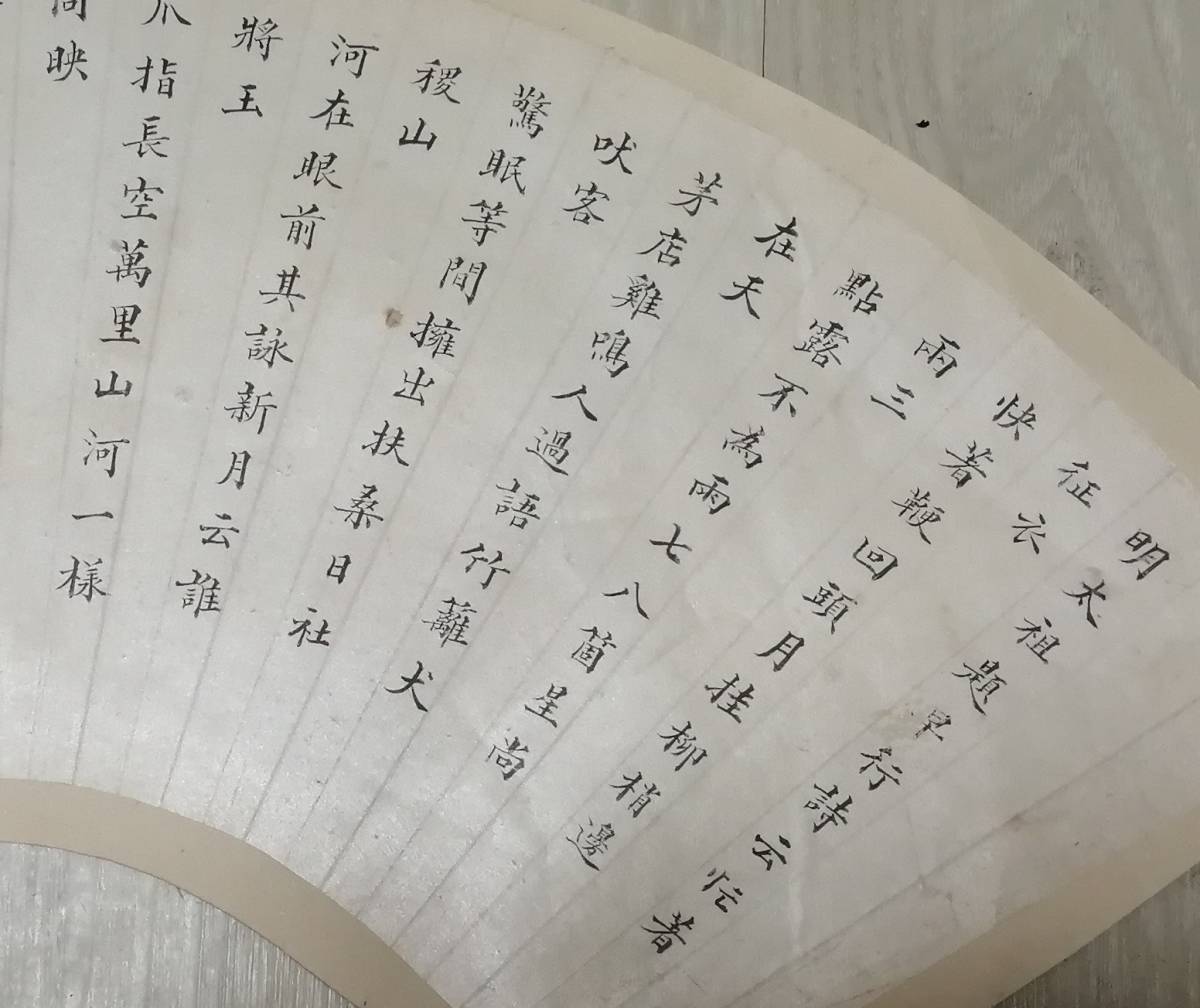 明太祖題早行詩云忙著
征衣
快著鞭回頭月挂柳稍邊
兩三
點露不為雨七八箇星尚
在天
茅店雞鳴人過語竹籬犬
吠客
驚眠等間擁出扶桑日社
稷山
河在眼前其詠新月云誰
將玉
爪指長空萬里山河一樣
映